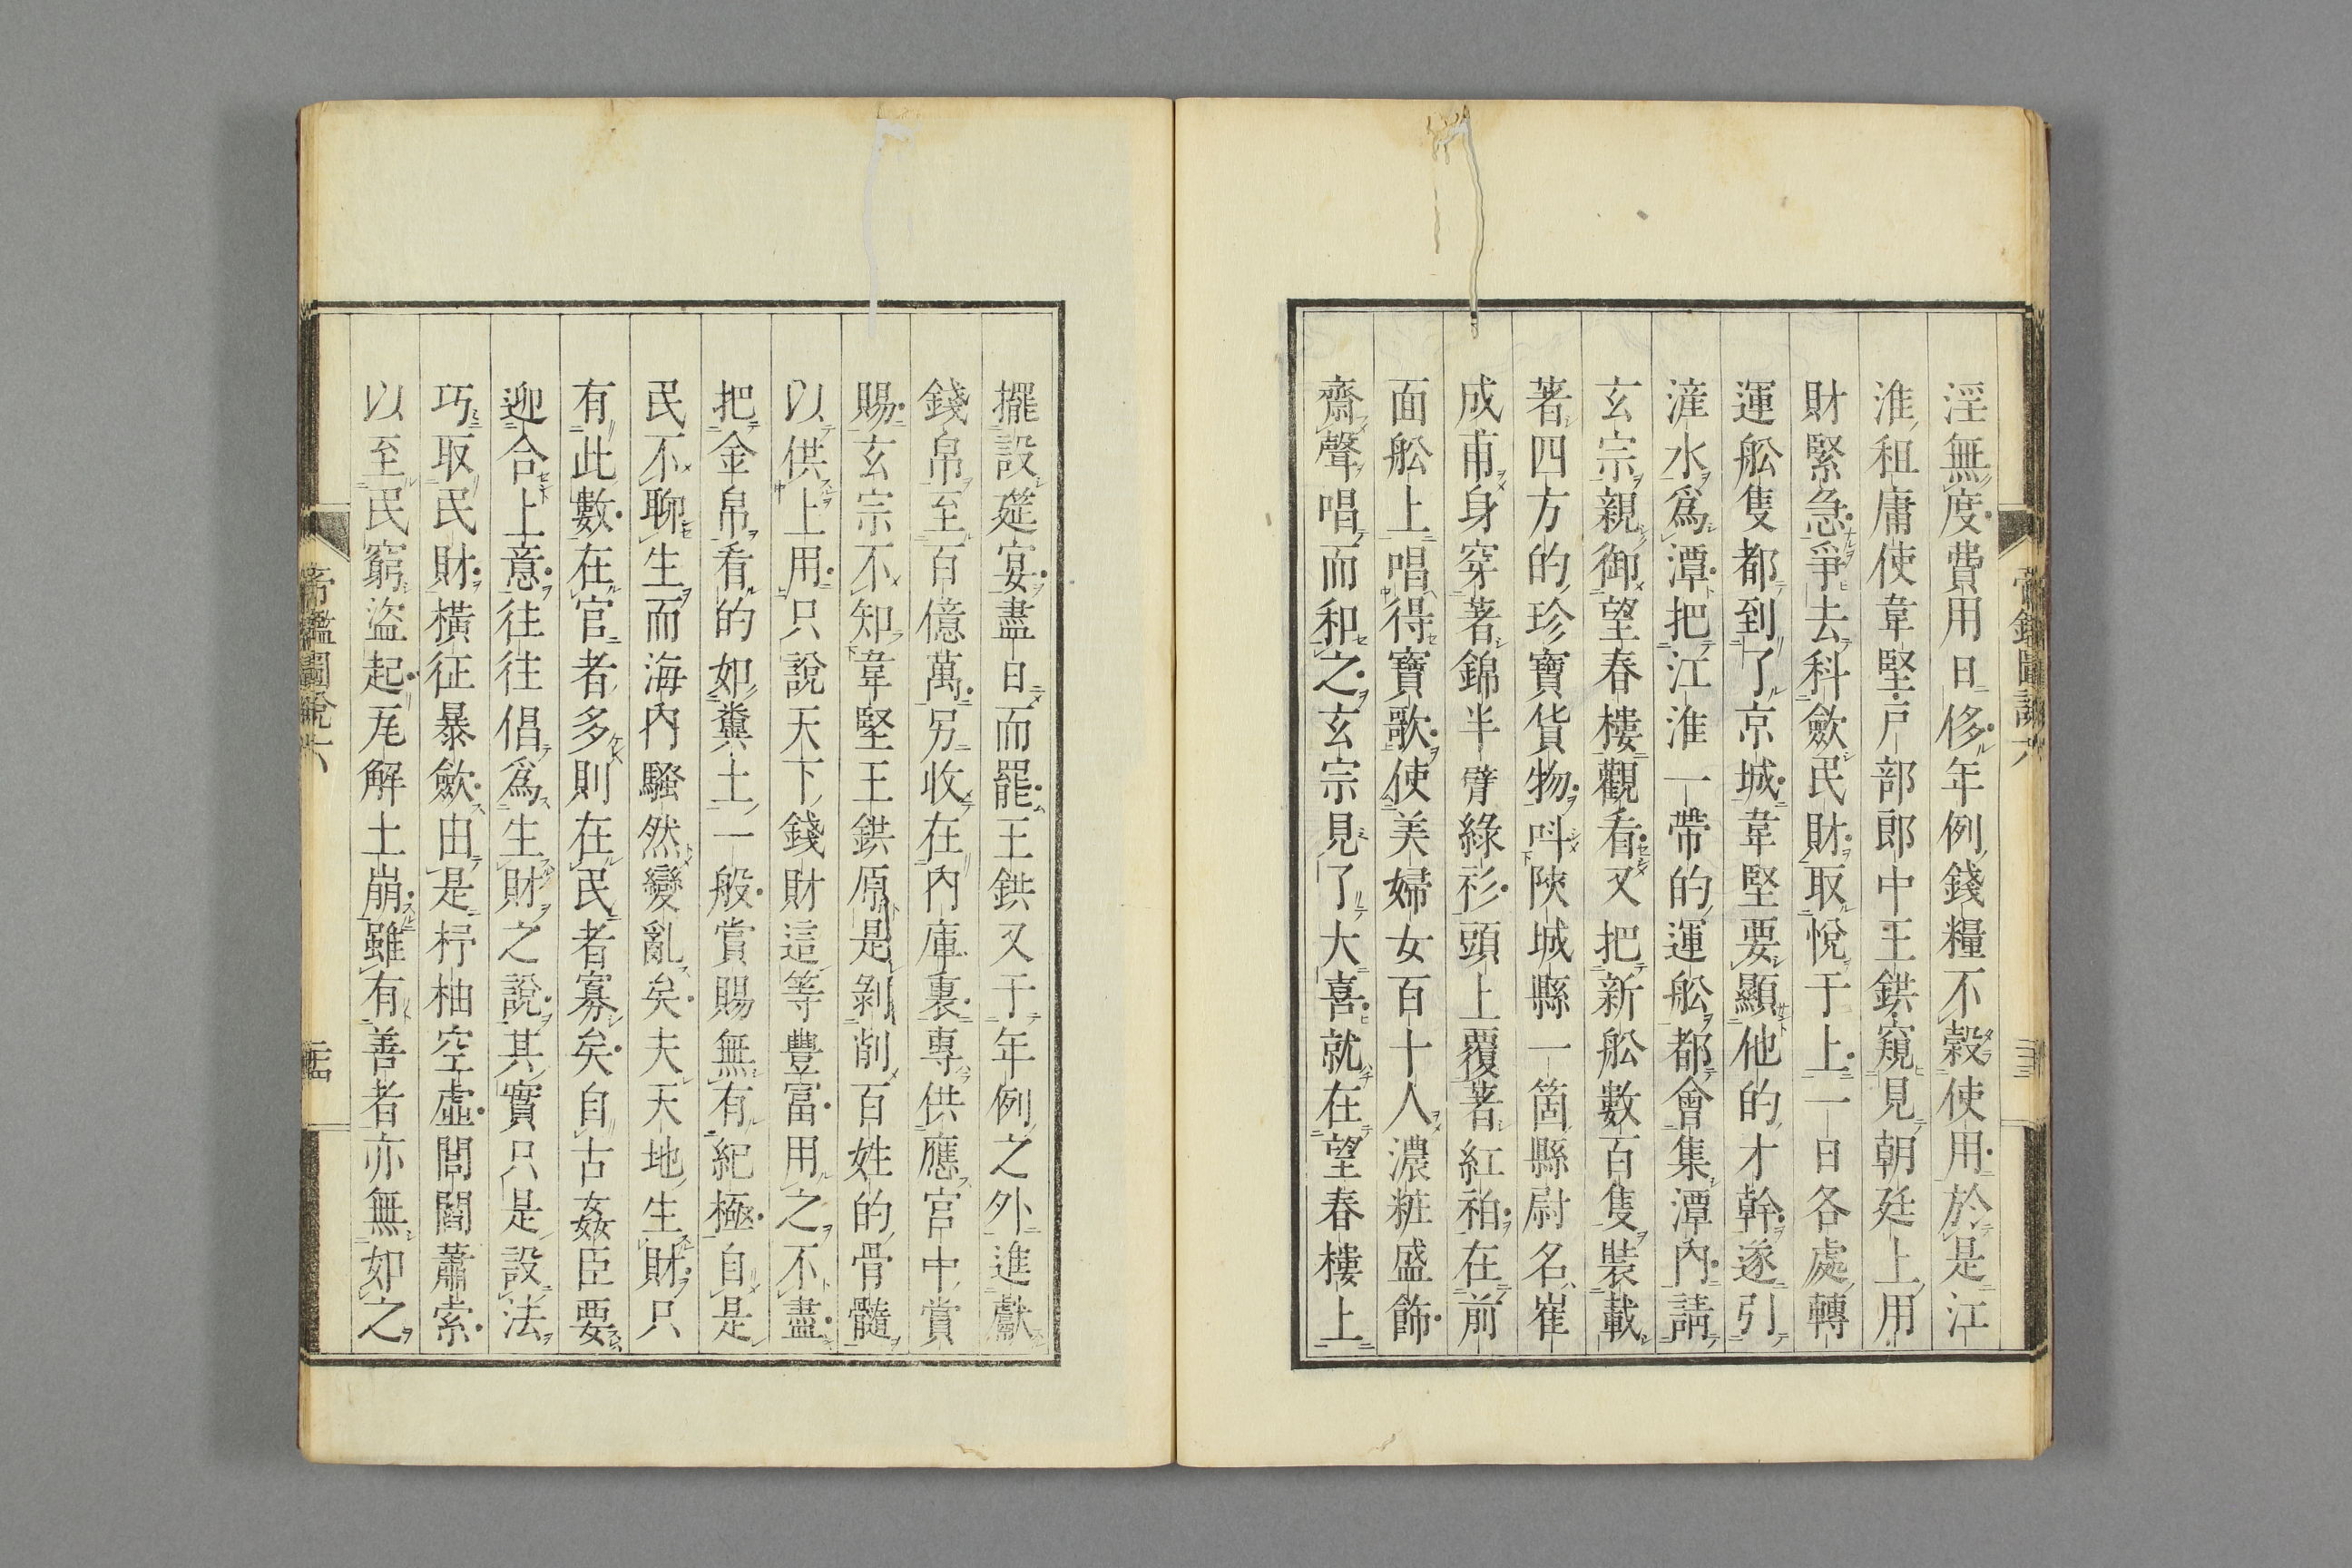 淫無度費用日侈年例錢糧不穀使用於是江
淮租庸使韋堅戸部郎中王鉷窺見朝廷上用
財緊急爭去科斂民財取悅于上一日各處轉
運舩隻都到了京城韋堅要顯他的才幹遂引
滻水爲潭把江淮一帶的運舩都會集潭內請
玄宗親御望春樓觀看又把新舩數百隻裝載
著四方的珍寶貨物呌陜城縣一箇縣尉名崔
成甫身穿著錦半臂綠衫頭上覆著紅袙在前
面舩上唱得寶歌使美婦女百十人濃粧盛飾
齋聲唱而和之玄宗見了大喜就在望春樓上
帝鑑圖說六
擺設筵宴盡日而罷王鉷又于年例之外進獻
錢帛至百億萬另收在內庫裏專供應宮中賞
賜玄宗不知韋堅王鉷原是剝削百姓的骨髓
以供上用只說天下錢財這等豐富用之不盡
把金帛看的如糞土一般賞賜無有紀極自是
民不聊生而海內騷然變亂矣夫天地生財只
有此數在官者多則在民者寡矣自古姦臣要
迎合上意往往倡爲生財之說其實只是設法
巧取民財橫征暴斂由是杼柚空虛閭閻蕭索
以至民窮盜起瓦解土崩雖有善者亦無如之
帝鑑圖說六